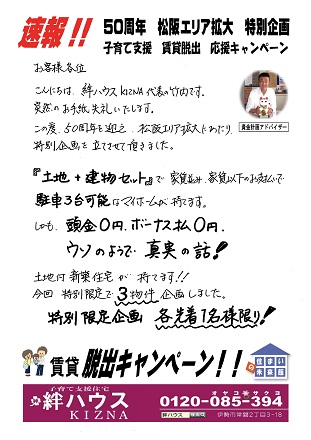 速報!! 50周年 松阪エリア拡大 特別企画
子育て支援 賃貸脱出 応援キャンペーン
お客様各位
こんにちは、絆ハウス KIZNA 代表の竹内です。
突然のお手紙失礼いたします。
資金計画アドバイザー
この度、50周年を迎え、松阪エリア拡大にあたり、
特別企画を立てさせて頂きました。
『土地+建物セット』で 家賃並み、家賃以下のお支払いで
駐車3台可能なマイホームが持てます。
しかも、頭金0円、ボーナス払0円、
ウソのようで真実の話!
土地付新築住宅が持てます!!
今回 特別限定で3物件企画しました。
特別限定企画 各先着1名様限り!
賃貸 脱出キャンペーン!!
住まい
未来館
子育て支援住宅
絆ハウス
KIZNA
オヤコヲサクヨ
0120-085-394
絆ハウス
伊勢市常磐2丁目3-18